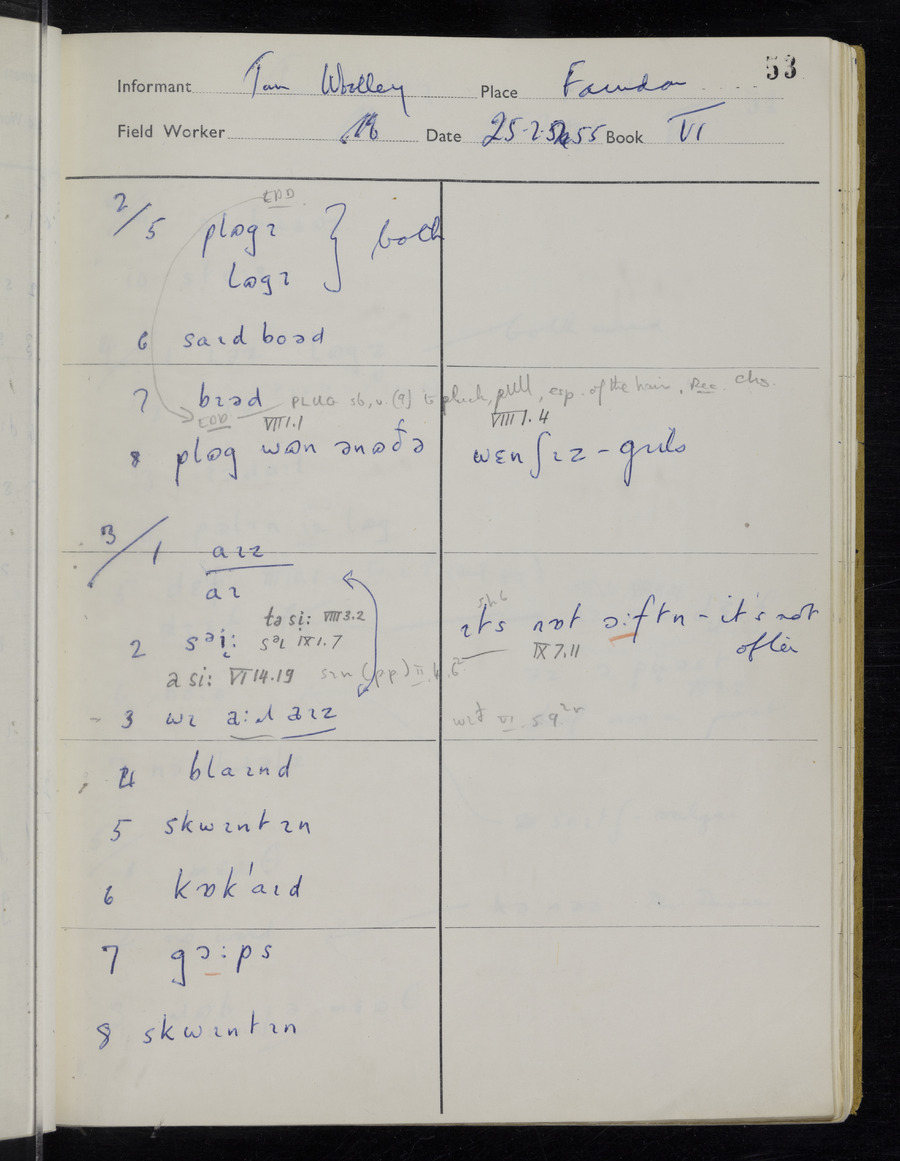 53
Informant Tom Woolley Place Farndon
Field Worker Date 25-2-55 Book VI
2/5 plɒgɪ } both EDD
lɒgɪ
6 saɪd bɔəd
7 bɪəd PLUG sb, v. (9) to pluck, pull, esp. of the hair. Rec. Chs.
EDD VII 1.1 VIII 1.4
8 plɒg wɒn ənɒðə wɛnʃɪz - girls
3/1 aɪz
aɪ
tə si: VIII 3.2 sh6
2 səi: səɪ IX 1.7 ɪts nɒt ɔ:ftn - it's not often
IX 7.11
ə si: VI 14.19 sɪn (pp) II.4.6
3 wɪ a:d aɪz wɪð VI 5.9
4 blaɪnd
5 skwɪntɪn
6 kɒk'aɪd
7 gɔ:ps
8 skwɪntɪn